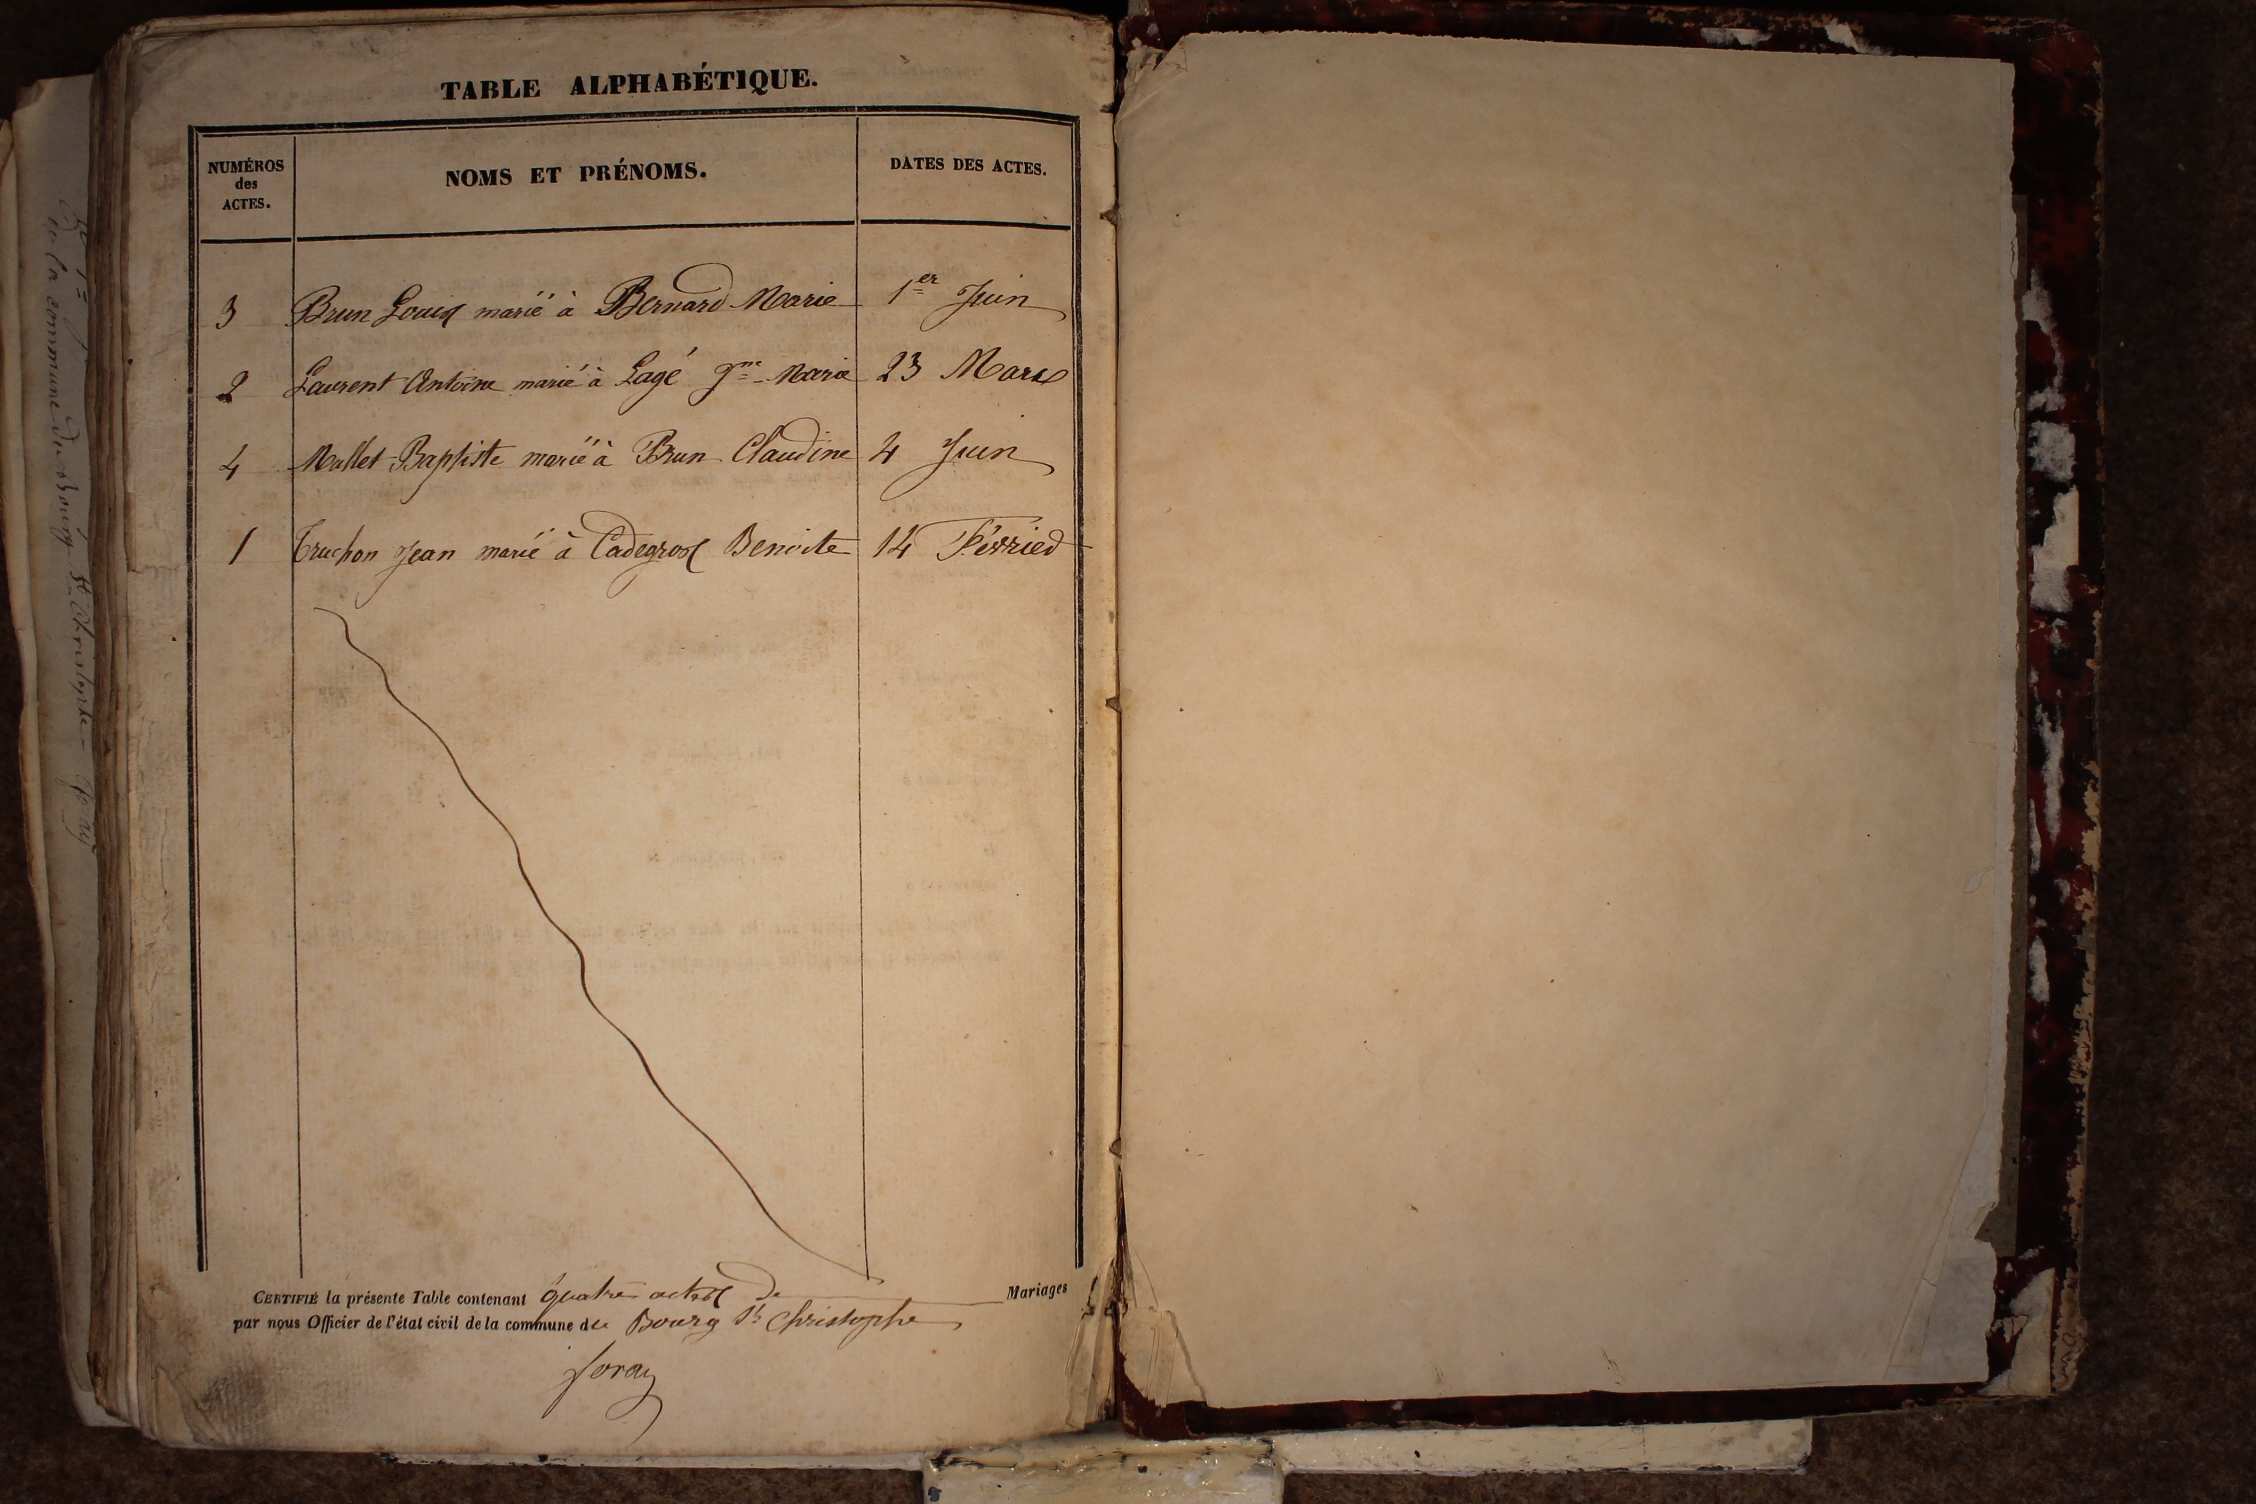 TABLE ALPHABÉTIQUE.
NUMÉROS des ACTES. NOMS ET PRÉNOMS. DATES DES ACTES.
3 Brun Louis marié à Bernard Marie 1er Juin
2 Laurent Antoine marié à Lagé Jne Marie 23 Mars
4 Mallet Baptiste marié à Brun Claudine 4 Juin
1 Truchon Jean marié à Cadegros Benoite 14 Février
CERTIFIÉ la présente Table contenant quatre actes de Mariages
par nous Officier de l'état civil de la commune de Bourg St Christophe
Joray
de la commune de Bourg St Christophe